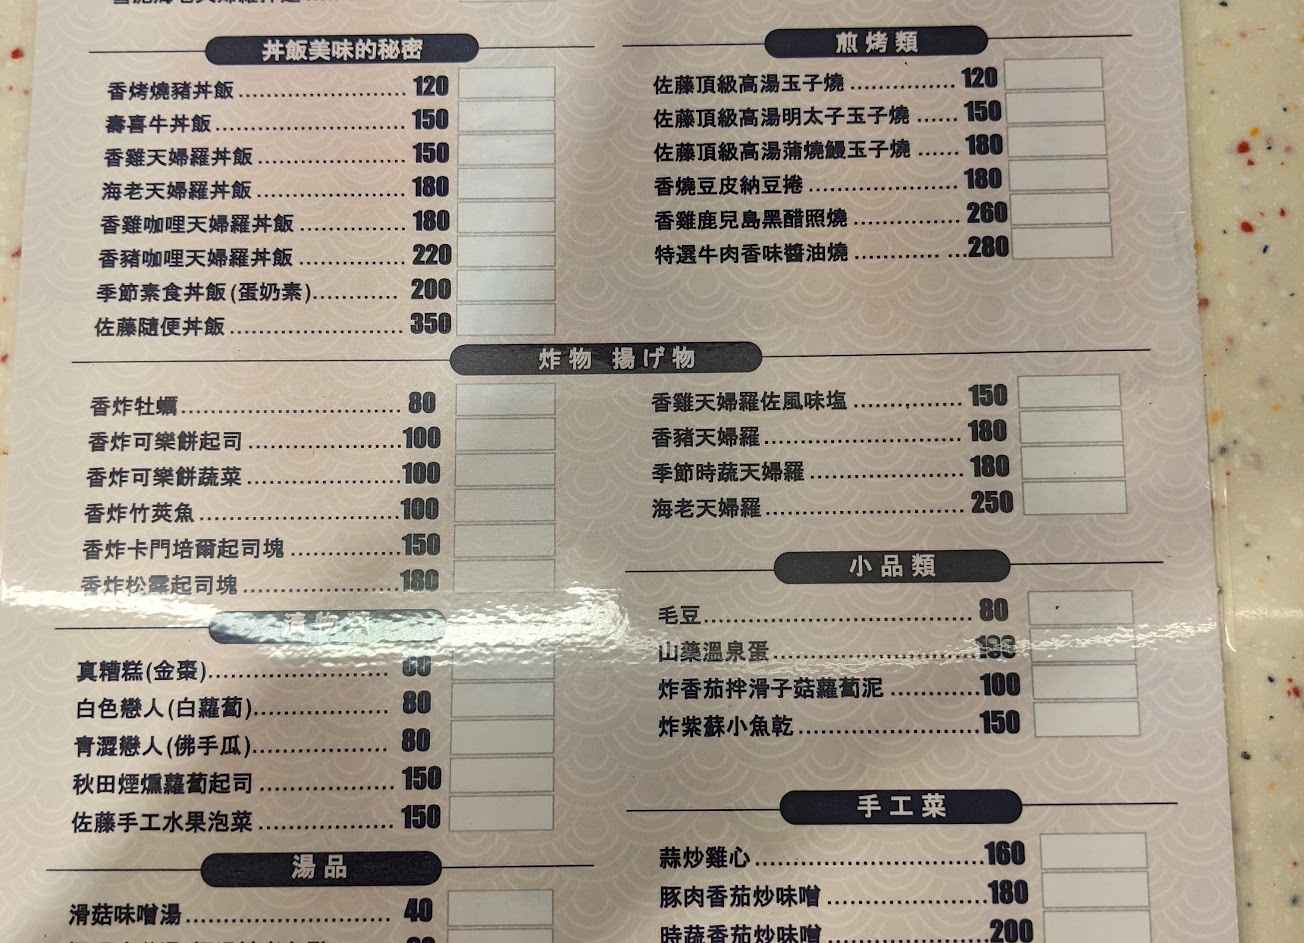 丼飯美味的秘密
香烤燒豬丼飯 120
壽喜牛丼飯 150
香雞天婦羅丼飯 150
海老天婦羅丼飯 180
香雞咖哩天婦羅丼飯 180
香豬咖哩天婦羅丼飯 220
季節素食丼飯(蛋奶素) 200
佐藤隨便丼飯 350
煎烤類
佐藤頂級高湯玉子燒 120
佐藤頂級高湯明太子玉子燒 150
佐藤頂級高湯蒲燒鰻玉子燒 180
香燒豆皮納豆捲 180
香雞鹿兒島黑醋照燒 260
特選牛肉香味醬油燒 280
炸物 揚げ物
香炸牡蠣 80
香炸可樂餅起司 100
香炸可樂餅蔬菜 100
香炸竹莢魚 100
香炸卡門培爾起司塊 150
香炸松露起司塊 180
香雞天婦羅佐風味塩 150
香豬天婦羅 180
季節時蔬天婦羅 180
海老天婦羅 250
漬物
真糟糕(金棗) 60
白色戀人(白蘿蔔) 80
青澀戀人(佛手瓜) 80
秋田煙燻蘿蔔起司 150
佐藤手工水果泡菜 150
小品類
毛豆 80
山藥溫泉蛋
炸香茄拌滑子菇蘿蔔泥 100
炸紫蘇小魚乾 150
湯品
滑菇味噌湯 40
手工菜
蒜炒雞心 160
豚肉香茄炒味噌 180
時蔬香茄炒味噌 200